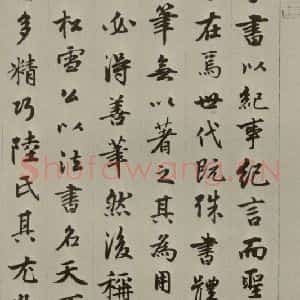 書以紀事紀言而聖
在焉世代既殊書體
筆無以著之其為用
必得善筆然後稱
松雪公以法書名天下
多精巧陸氏其尤
Shufawang.CN